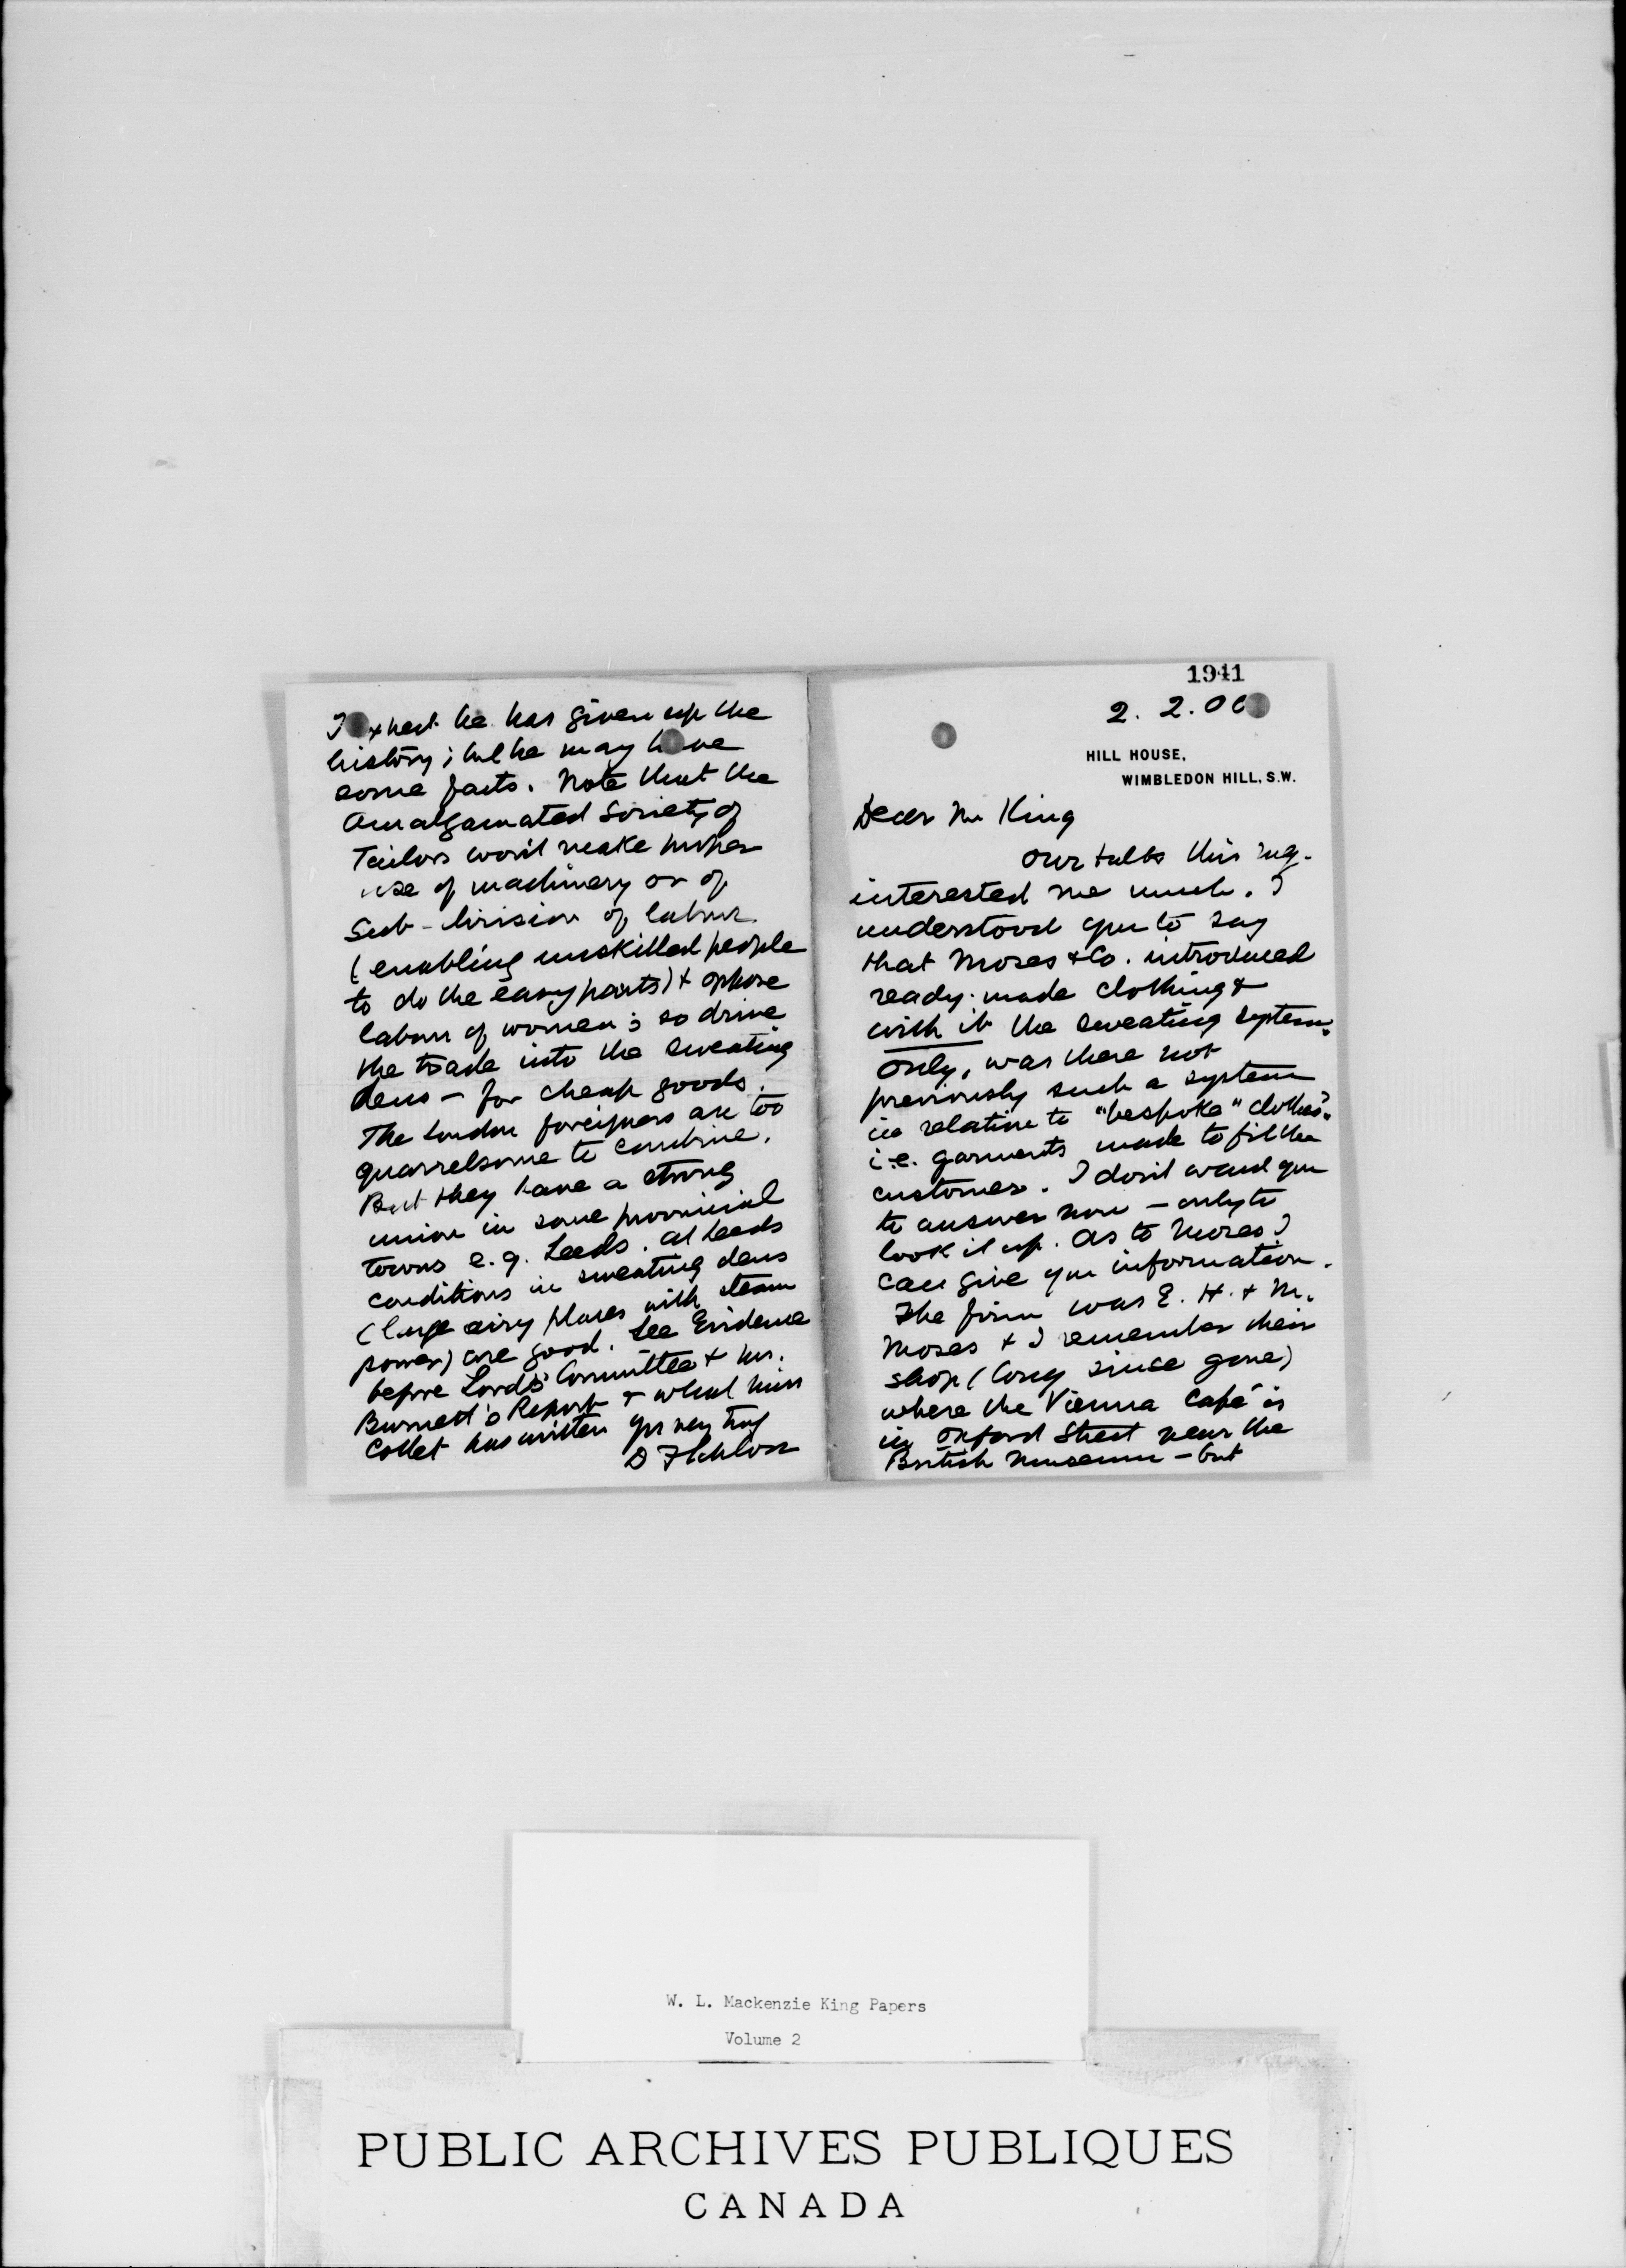 I expect he has given up the
history; but he may have
some facts. Note that the
Amalgamated Society of
Tailors won't make proper
use of machinery or of
Sub-division of labour
(enabling unskilled people
to do the easy parts) & oppose
labour of women; so drive
the trade into the sweating
dens – for cheap goods.
The London foreigners are too
quarrelsome to combine.
But they have a strong
union in some provincial
towns e.g. Leeds. At Leeds
conditions in sweating dens
(large airy places with steam
power) are good. See Evidence
before Lords' Committee & Mr.
Burnett's Report & what Miss
Collet has written yrs very try
D F Schloss
1941
2. 2. 00
HILL HOUSE,
WIMBLEDON HILL, S.W.
Dear Mr King
Our talks this mg.
interested me much. I
understood you to say
that Moses & Co. introduced
ready-made clothing &
with it the sweating system.
Only, was there not
previously such a system
in relation to "bespoke" clothes?
i.e. garments made to fit the
customer. I don't want you
to answer now – only to
look it up. As to Moses I
can give you information.
The firm was E. H. & M.
Moses & I remember their
shop (long since gone)
where the Vienna Café is
in Oxford Street near the
British Museum – but
W. L. Mackenzie King Papers
Volume 2
PUBLIC ARCHIVES PUBLIQUES
CANADA